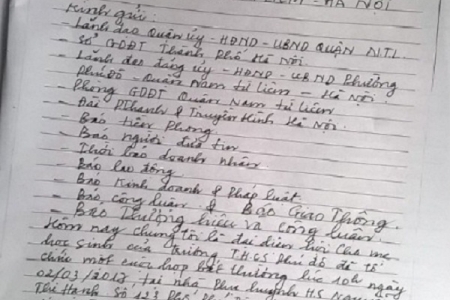 HÀ NỘI
Kính gửi:
- Lãnh đạo Quận ủy - HĐND - UBND QUẬN NTL.
- Sở GDĐT Thành Phố Hà Nội.
- Lãnh đạo đảng ủy - HĐND - UBND Phường
Phú Đô - Quận Nam từ Liêm - Hà Nội
Phòng GDĐT Quận Nam từ Liêm
- Đài PThanh & Truyền Hình Hà Nội.
- Báo tiền Phong.
- Báo người đưa tin
- Thời báo doanh nhân
- Báo lao động.
- Báo Kinh doanh & Pháp luật.
- Báo Công luận & Báo Giao Thông.
- Báo Thương hiệu và Công luận.
Hôm nay chúng tôi là đại diện hội cha mẹ
học sinh của trường THCS Phú đô đã tổ
chức một cuộc họp bất thường lúc 10h ngày
02/03/2017 tại nhà Phụ huynh HS
Thị Hạnh Số 123